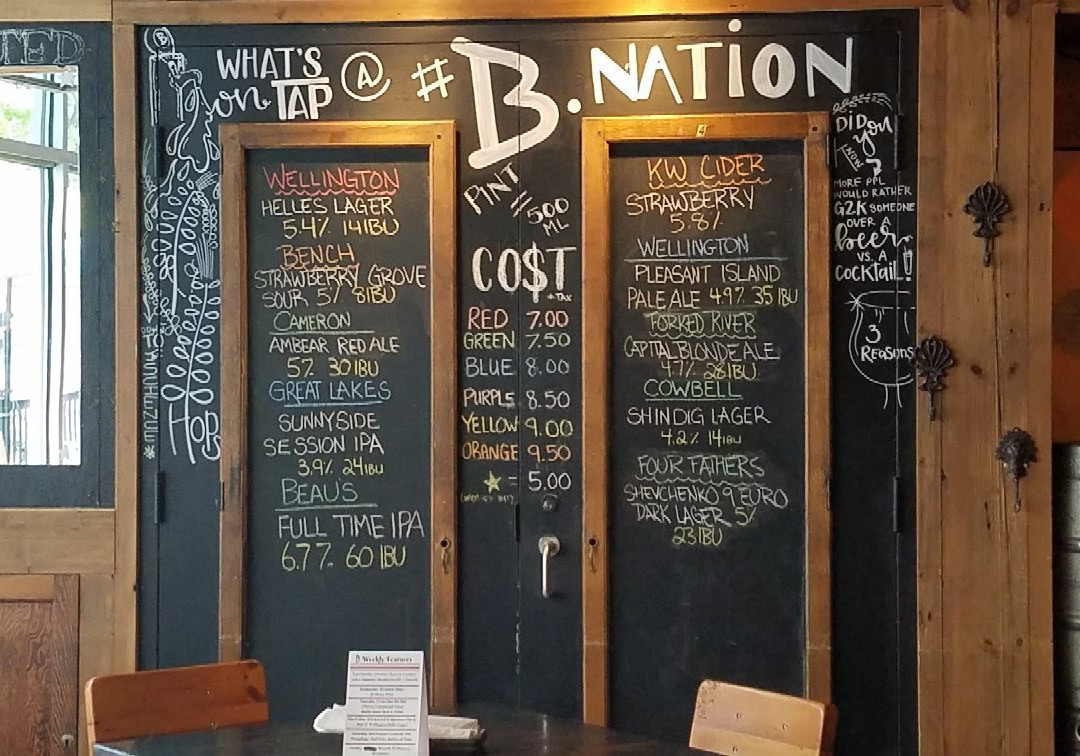 WHAT'S
on TAP @ # B. NATION
WELLINGTON
HELLES LAGER
5.4% 14IBU
BENCH
STRAWBERRY GROVE
SOUR 5% 8IBU
CAMERON
AMBEAR RED ALE
5% 30IBU
GREAT LAKES
SUNNYSIDE
SESSION IPA
3.9% 24IBU
BEAU'S
FULL TIME IPA
6.7% 60 IBU
PINT =
500
ML
CO$T
+TAX
RED 7.00
GREEN 7.50
BLUE 8.00
PURPLE 8.50
YELLOW 9.00
ORANGE 9.50
= 5.00
KW CIDER
STRAWBERRY
5.8%
WELLINGTON
PLEASANT ISLAND
PALE ALE 4.9% 35 IBU
FORKED RIVER
CAPITAL BLONDE ALE
4.7% 28IBU
COWBELL
SHINDIG LAGER
4.2% 14IBU
FOUR FATHERS
SHEVCHENKO 9 EURO
DARK LAGER 5%
23IBU
DiD
you
KNOW?
MORE PPL
WOULD RATHER
G2K SOMEONE
OVER A
beer
vs. A
COCKTAIL!
3
REASONS
HOPS
B Weekly Features